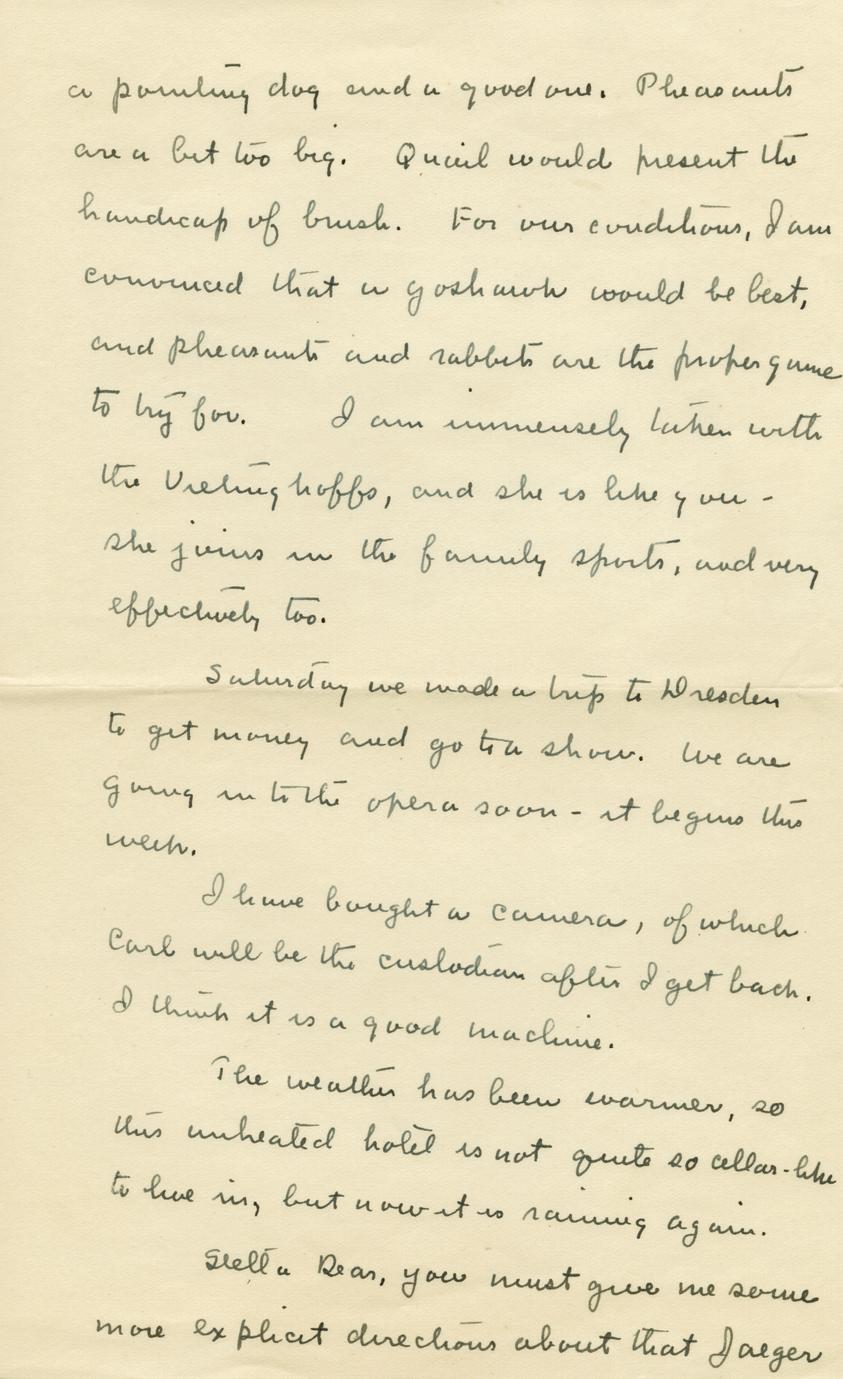 a pointing dog and a good one. Pheasants
are a bit too big. Quail would present the
handicap of brush. For our conditions, I am
convinced that a goshawk would be best,
and pheasants and rabbits are the proper game
to try for. I am immensely taken with
the Vietinghoffs, and she is like you -
she joins in the family sports, and very
effectively too.
Saturday we made a trip to Dresden
to get money and go to a show. We are
going in to the opera soon - it begins this
week.
I have bought a camera, of which
Carl will be the custodian after I get back.
I think it is a good machine.
The weather has been warmer, so
this unheated hotel is not quite so cellar-like
to live in, but now it is raining again.
Stella Dear, you must give me some
more explicit directions about that Jaeger